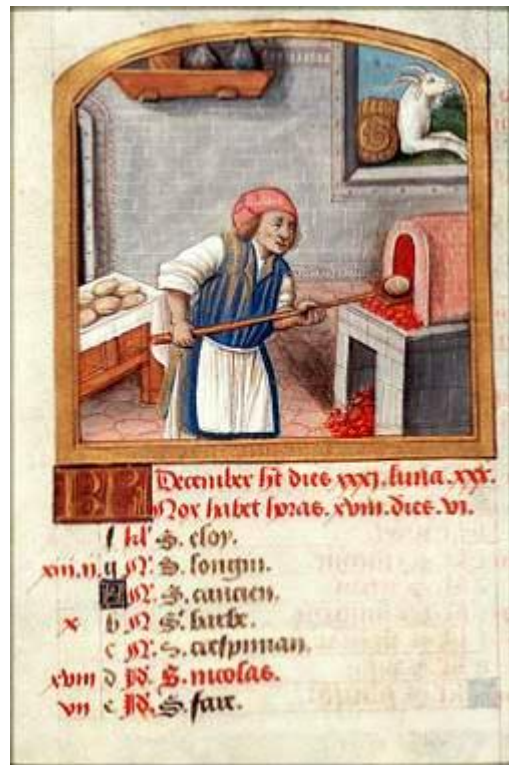 KL December ht dies xxxj. luna. xxx.
Nox habet horas. xviii. dies. vi.
f kl' S. eloy.
xiii. n. g N. S. longin.
A N. S. cancien.
x b N S. barbe.
c N. S. crespinian.
xviii d N. S. nicolas.
vii e N. S. fare.